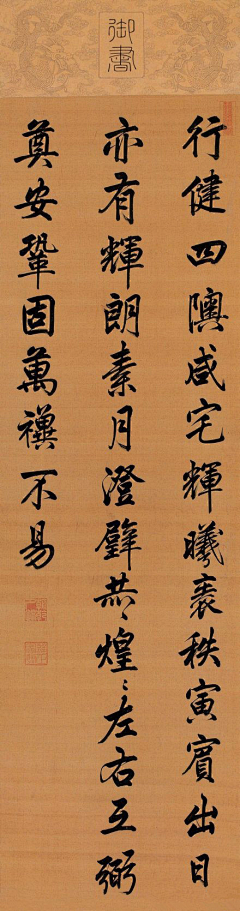 御書
行健四隩咸宅輝曦秩寅賓出日
亦有輝朗素月澄璧赫〻煌〻左右互弼
奠安鞏固萬禩不易